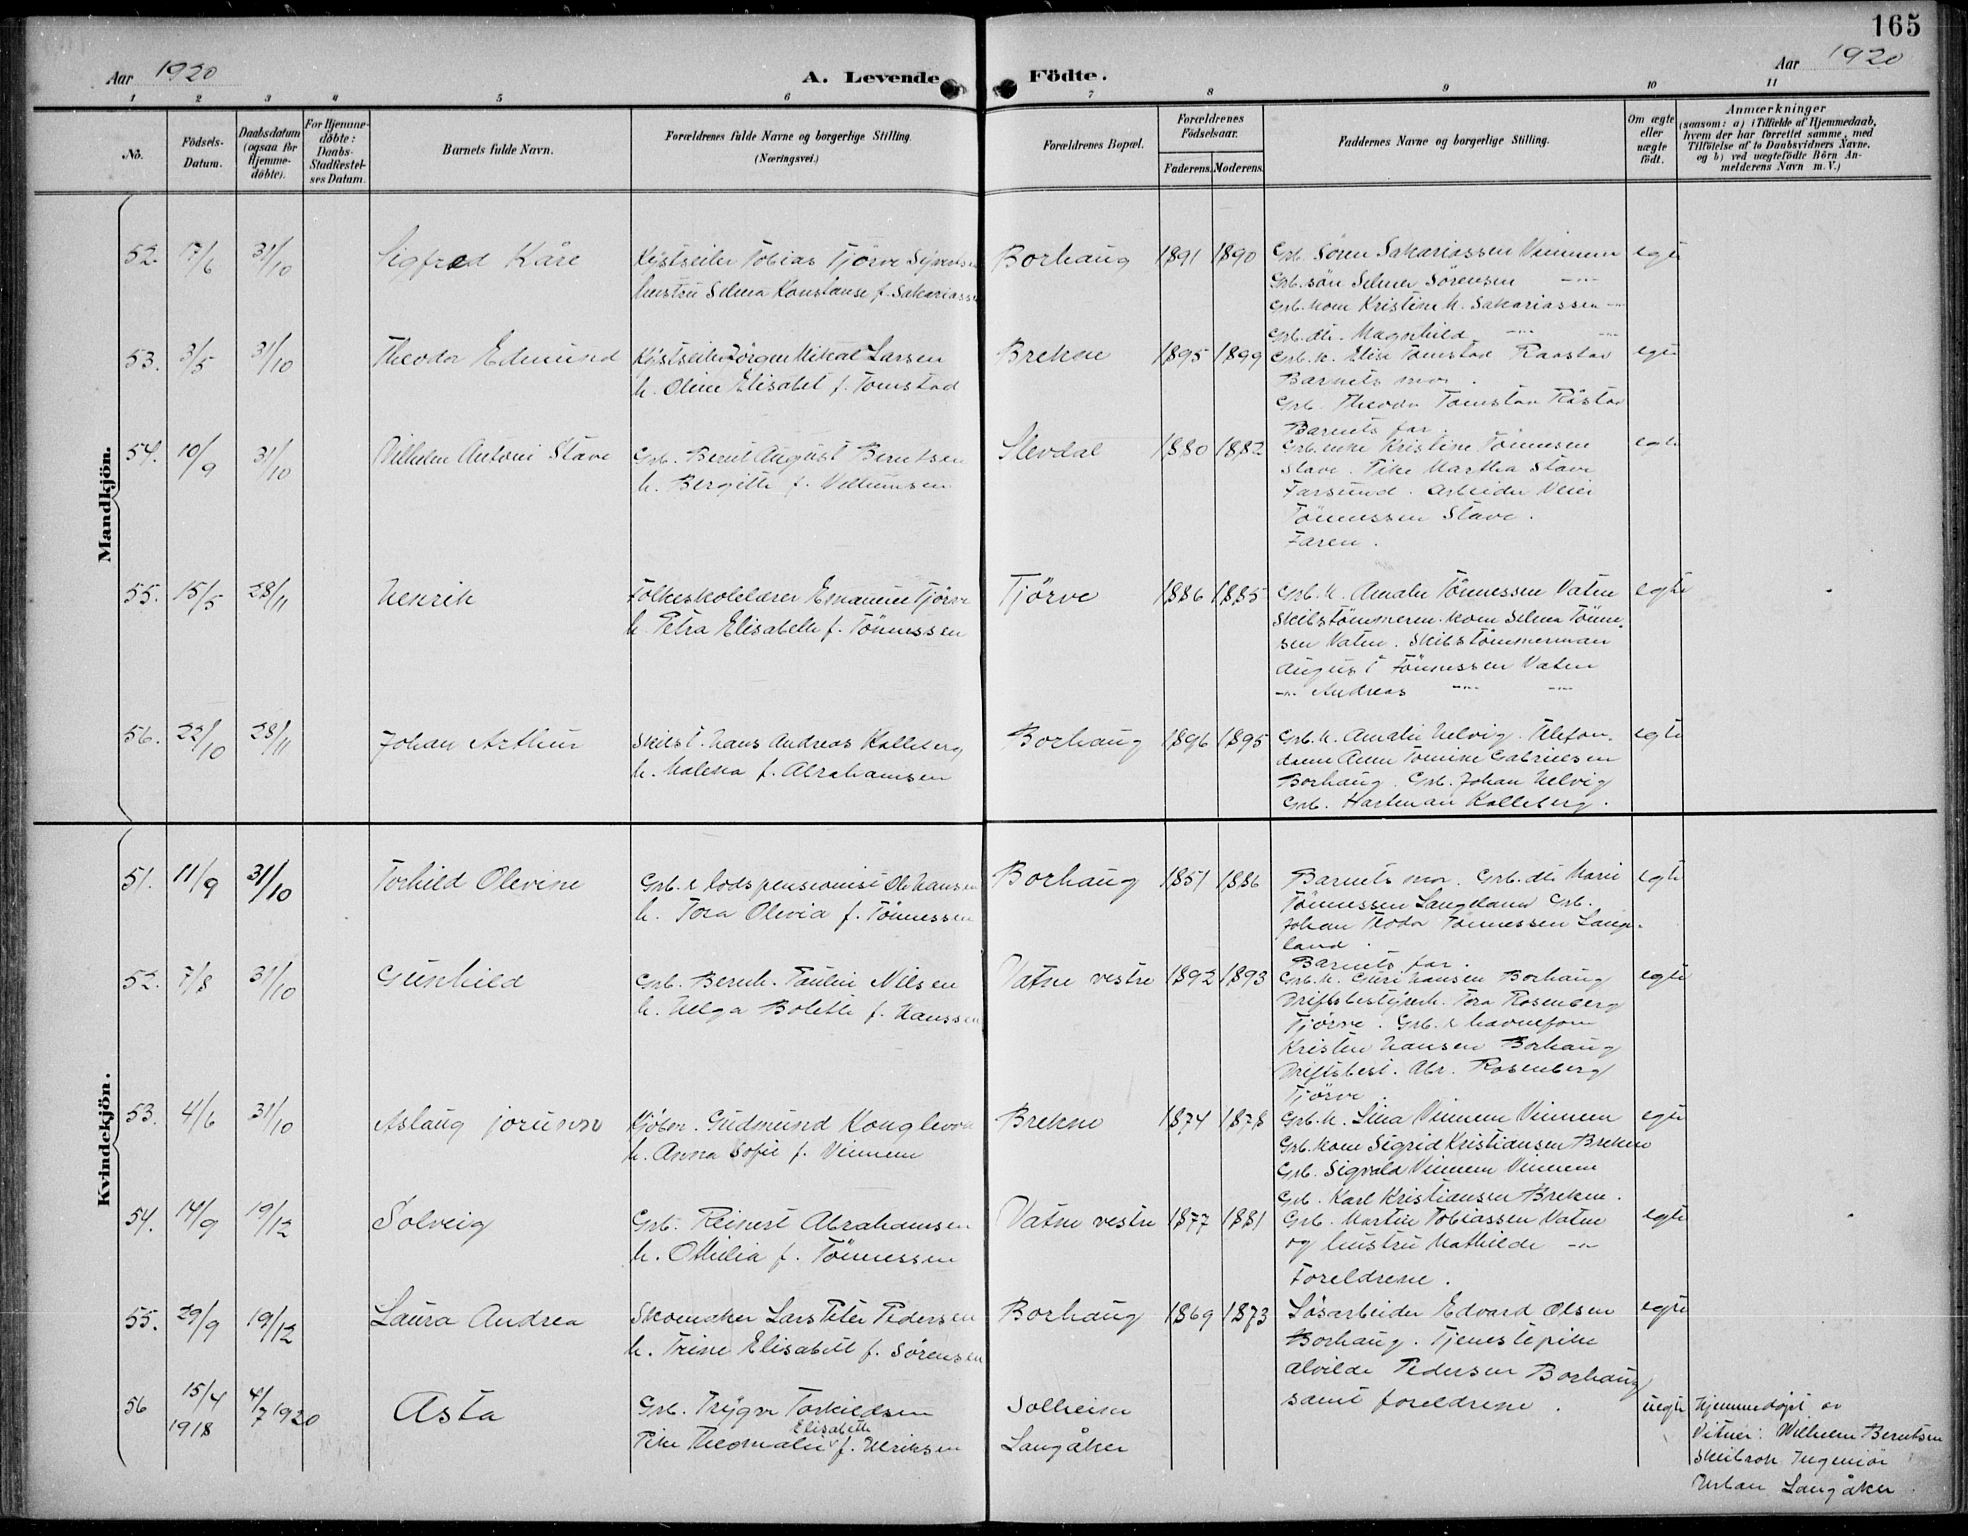 165
Aar 1920
A. Levende Födte.
Aar 1920
1 2 3 4 5 6 7 8 9 10 11
No.
Födsels-Datum.
Daabsdatum (ogsaa for Hjemme-döbte).
For Hjemme-döbte: Daabs-Stadfæstel-ses Datum.
Barnets fulde Navn.
Forældrenes fulde Navne og borgerlige Stilling.
(Næringsvei.)
Forældrenes Bopæl.
Forældrenes Födselsaar.
Faderens. Moderens.
Faddernes Navne og borgerlige Stilling.
Om ægte eller uægte födt.
Anmærkninger
(saasom: a) i Tilfælde af Hjemmedaab, hvem der har forrettet samme, med Tilföielse af to Daabsvidners Navne. og b) ved uægtefödte Börn An-melderens Navn m. V.)
Mandkjön.
52. 17/6 31/10 Sigfred Kåre
Kystseiler Tobias Tjörve Syvertsen
hustru Selma Konstanse f. Sakariassen
Borhaug 1891 1890
Grb. Sören Sakariassen Vinnem
Grb.sön Selmer Sörensen -"-
Grb. kone Kristine M. Sakariassen -"-
Grb. dtr. Magnhild -"- -"-
egte
53. 3/5 31/10 Theodor Edmund
Kystseiler Jörgen Mikal Larsen
h. Oline Elisabet f. Tomstad
Brekne 1895 1899
Grb. h. Elise Tomstad Raastad
Barnets mor.
Grb. Theodor Tomstad Råstad
Barnets far.
egte
54. 10/9 31/10 Vilhelm Antoni Stave
Grb. Bernt August Berntsen
h. Bergitte f. Villumsen
Slevdal 1880 1882
Grb. enke Kristine Tönnesen
Stave. Pike Martha Stave
Farsund. Arbeider Meier
Tönnessen Stave.
Faren.
egte
55. 15/5 28/11 Henrik
Folkeskolelærer Emanuel Tjörve
h. Petra Elisabeth f. Tönnessen
Tjörve 1886 1885
Grb. h. Amalie Tönnessen Vatne
Skibstömmerm. kone Selma Tönne-
sen Vatne. Skibstömmerman
August Tönnessen Vatne
-"- Andreas -"- -"-
egte
56. 22/10 28/11 Johan Arthur
Skibst. Hans Andreas Kalleberg
h. Malena f. Abrahamsen
Borhaug 1896 1895
Grb. h. Amalie Helvig. Telefon-
dame Anne Tomine Gabrielsen
Borhaug. Grb. Johan Helvig
Grb. Hartman Kalleberg.
egte
Kvindekjön.
51. 11/9 31/10 Torhild Olevine
Grb. & lodspensionist Ole Hansen
h. Tora Olevia f. Tönnessen
Borhaug 1851 1886
Barnets mor. Grb. dtr. Marie
Tönnessen Langeland Grb.
Johan Teodor Tönnessen Lange-
land.
Barnets far.
egte
52. 7/8 31/10 Gunhild
Grb. Bernh. Paulin Nilsen
h. Helga Bolette f. Hanssen
Vatne vestre 1892 1893
Grb. h. Guri Hansen Borhaug
Driftsbestyrerh. Tora Rosenberg
Tjörve. Grb. & havnefom
Kristen Hansen Borhaug
Driftsbest. Abr. Rosenberg
Tjörve.
egte
53. 4/6 31/10 Aslaug Jorunn
Kjöbm. Gudmund Konglevoll
h. Anna Sofie f. Vinnem
Brekne 1874 1878
Grb. h. Lina Vinnem Vinnem
Grb. kone Sigrid Kristiansen Brekne
Grb. Sigvald Vinnem Vinnem
Grb. Karl Kristiansen Brekne.
egte
54. 14/9 19/12 Solveig
Grb. Reinert Abrahamsen
h. Othilia f. Tönnessen
Vatne vestre 1877 1881
Grb. Martin Tobiassen Vatne
og hustru Mathilde -"-
Foreldrene.
egte
55. 29/9 19/12 Laura Andrea
Skomaker Lars Peter Pedersen
h. Trine Elisabett f. Sörensen
Borhaug 1869 1873
Løsarbeider Edvard Olsen
Borhaug. Tjenestepike
Alvilde Pedersen Borhaug
samt foreldrene.
egte
56 15/4 1918 4/7 1920 Asta
Grb. Trygve Torkildsen
Pike Theomalie Elisabeth f. Ulriksen
Solheim
Langåker
uegte
Hjemmedøpt av
Vitner: Wilhelm Berntsen
Langåker.